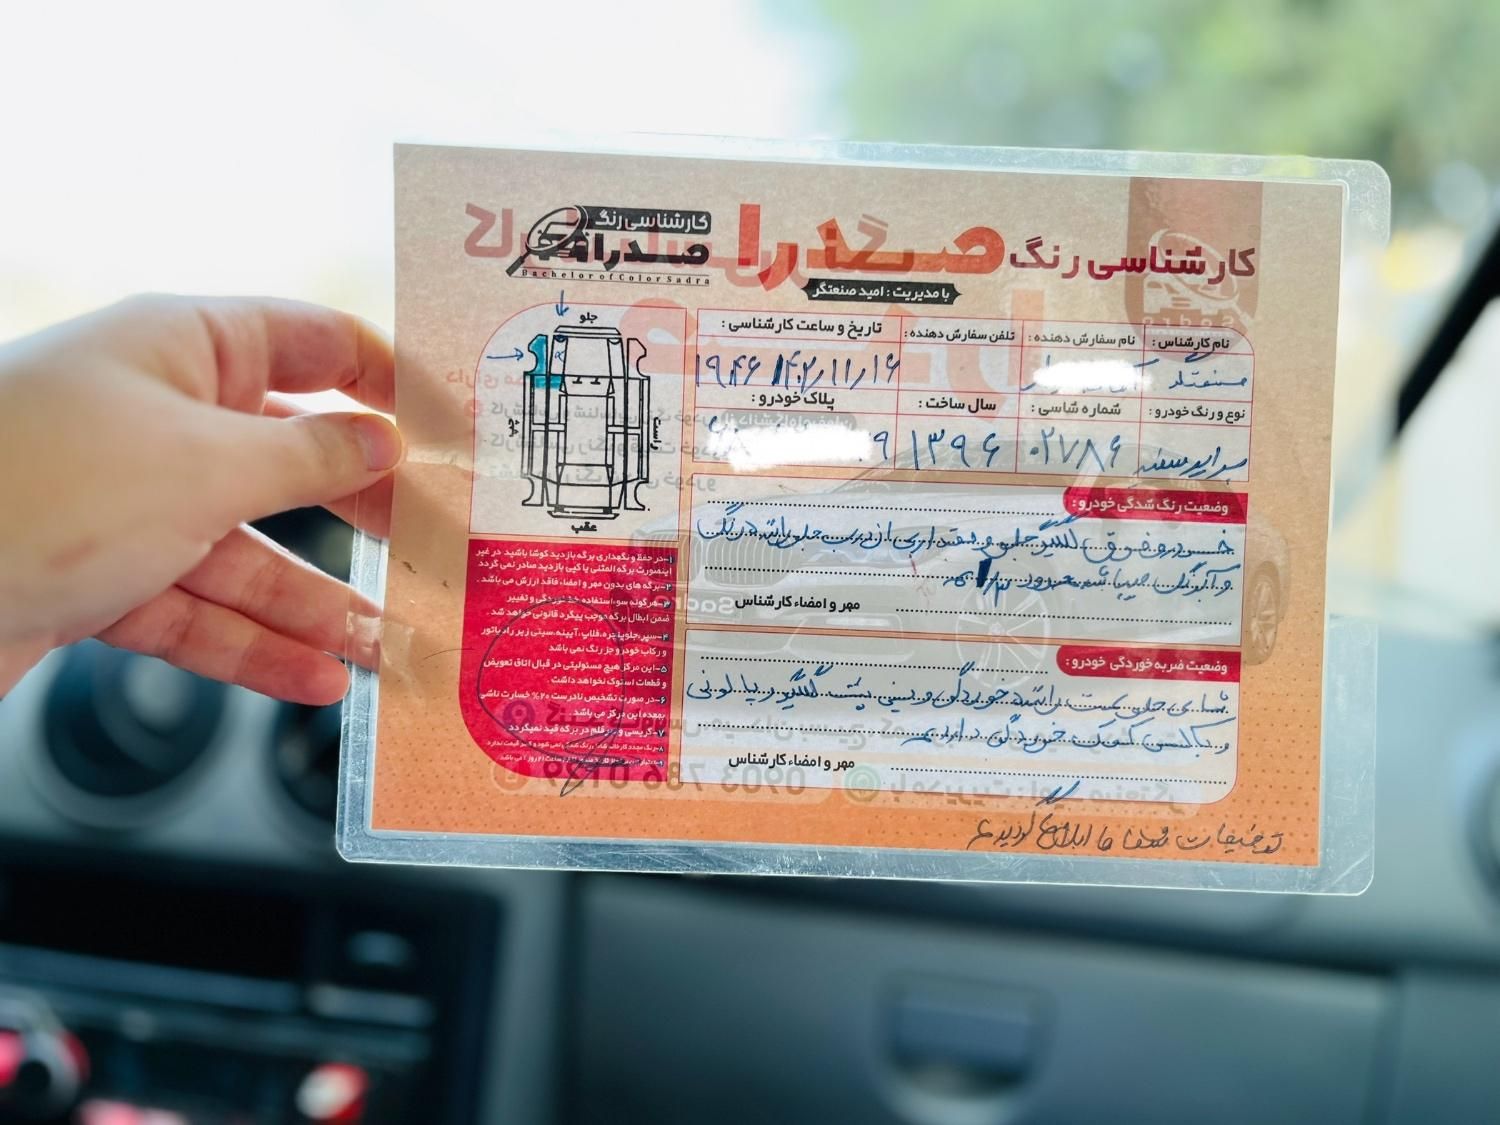 کارشناسی رنگ صدرا
با مدیریت : امید صنعتگر
کارشناسی رنگ
صدرا
Bachelor of Color Sadra
نام کارشناس :
نام سفارش دهنده :
تلفن سفارش دهنده :
تاریخ و ساعت کارشناسی :
صنعتگر
۱۴۰۲/۱۱/۱۶
نوع و رنگ خودرو :
شماره شاسی :
سال ساخت :
پلاک خودرو :
پراید سفید
۰۲۷۸۶
۱۳۹۶
جلو
راست
چپ
عقب
وضعیت رنگ شدگی خودرو :
خودرو فوق گلگیر جلو و مقداری از درب جلو راننده رنگ
مهر و امضاء کارشناس
وضعیت ضربه خوردگی خودرو :
شاسی جلو سمت راننده خوردگی و سینی پشت گلگیر پالونی
خوردگی داریم
مهر و امضاء کارشناس
۱-در حفظ و نگهداری برگه بازدید کوشا باشید در غیر
اینصورت برگه المثنی یا کپی بازدید صادر نمی گردد
۲-برگه های بدون مهر و امضاء فاقد ارزش می باشد.
۳-هرگونه سوء استفاده خط خوردگی و تغییر
ضمن ابطال برگه موجب پیگرد قانونی خواهد شد.
۴-سپر، جلو پنجره، فلاپ، آیینه، سینی زیر رادیاتور
و رکاب خودرو جز رنگ نمی باشد
۵-این مرکز هیچ مسئولیتی در قبال اتاق تعویض
و قطعات استوک نخواهد داشت.
۶-در صورت تشخیص نادرست ۲۰% خسارت ناشی
بعهده این مرکز می باشد.
توضیحات شفاها ابلاغ گردید